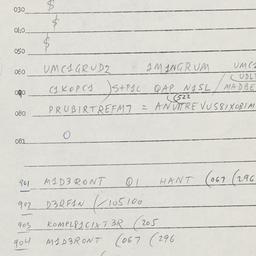 030 $
040 $
050 $
060 UMC1GRUD2 1M1NGRUM UMC1
(UDL1
070 C1KOPC1 )S+P1C QAP N1SL / MADBE
(522
080 PRUBIRTREFM7 = ANUTREVUS81X081M
081 0
901 M1D3RONT Q1 HANT (067 (296
902 D3RF1N (/105100
903 KOMPL81C1XT3R (205
904 M1D3RONT (067 (296